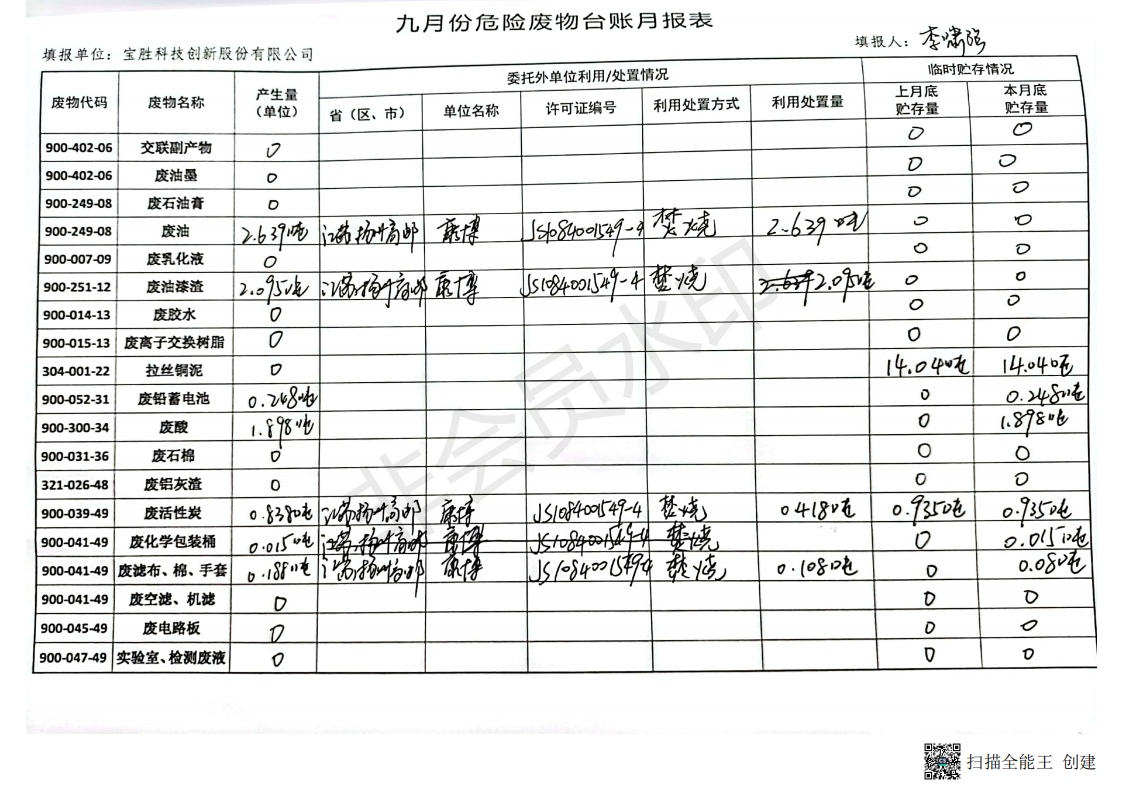 九月份危险废物台账月报表
填报单位：宝胜科技创新股份有限公司 填报人：李啸
废物代码 废物名称 产生量（单位） 委托外单位利用/处置情况 临时贮存情况
省（区、市） 单位名称 许可证编号 利用处置方式 利用处置量 上月底贮存量 本月底贮存量
900-402-06 交联副产物 0 0 0
900-402-06 废油墨 0 0 0
900-249-08 废石油膏 0 0 0
900-249-08 废油 2.639吨 江苏扬州高邮 康博 JS1084001549-4 焚烧 2.639吨 0 0
900-007-09 废乳化液 0 0 0
900-251-12 废油漆渣 2.095吨 江苏扬州高邮 康博 JS1084001549-4 焚烧 2.639 2.095吨 0 0
900-014-13 废胶水 0 0 0
900-015-13 废离子交换树脂 0 0 0
304-001-22 拉丝铜泥 0 14.040吨 14.040吨
900-052-31 废铅蓄电池 0.248吨 0 0.248吨
900-300-34 废酸 1.898吨 0 1.898吨
900-031-36 废石棉 0 0 0
321-026-48 废铝灰渣 0 0 0
900-039-49 废活性炭 0.838吨 江苏扬州高邮 康博 JS1084001549-4 焚烧 0.418吨 0.935吨 0.935吨
900-041-49 废化学包装桶 0.015吨 江苏扬州高邮 康博 JS1084001549-4 焚烧 0 0.015吨
900-041-49 废滤布、棉、手套 0.188吨 江苏扬州高邮 康博 JS1084001549-4 焚烧 0.108吨 0 0.080吨
900-041-49 废空滤、机滤 0 0 0
900-045-49 废电路板 0 0 0
900-047-49 实验室、检测废液 0 0 0
非会员水印
扫描全能王 创建